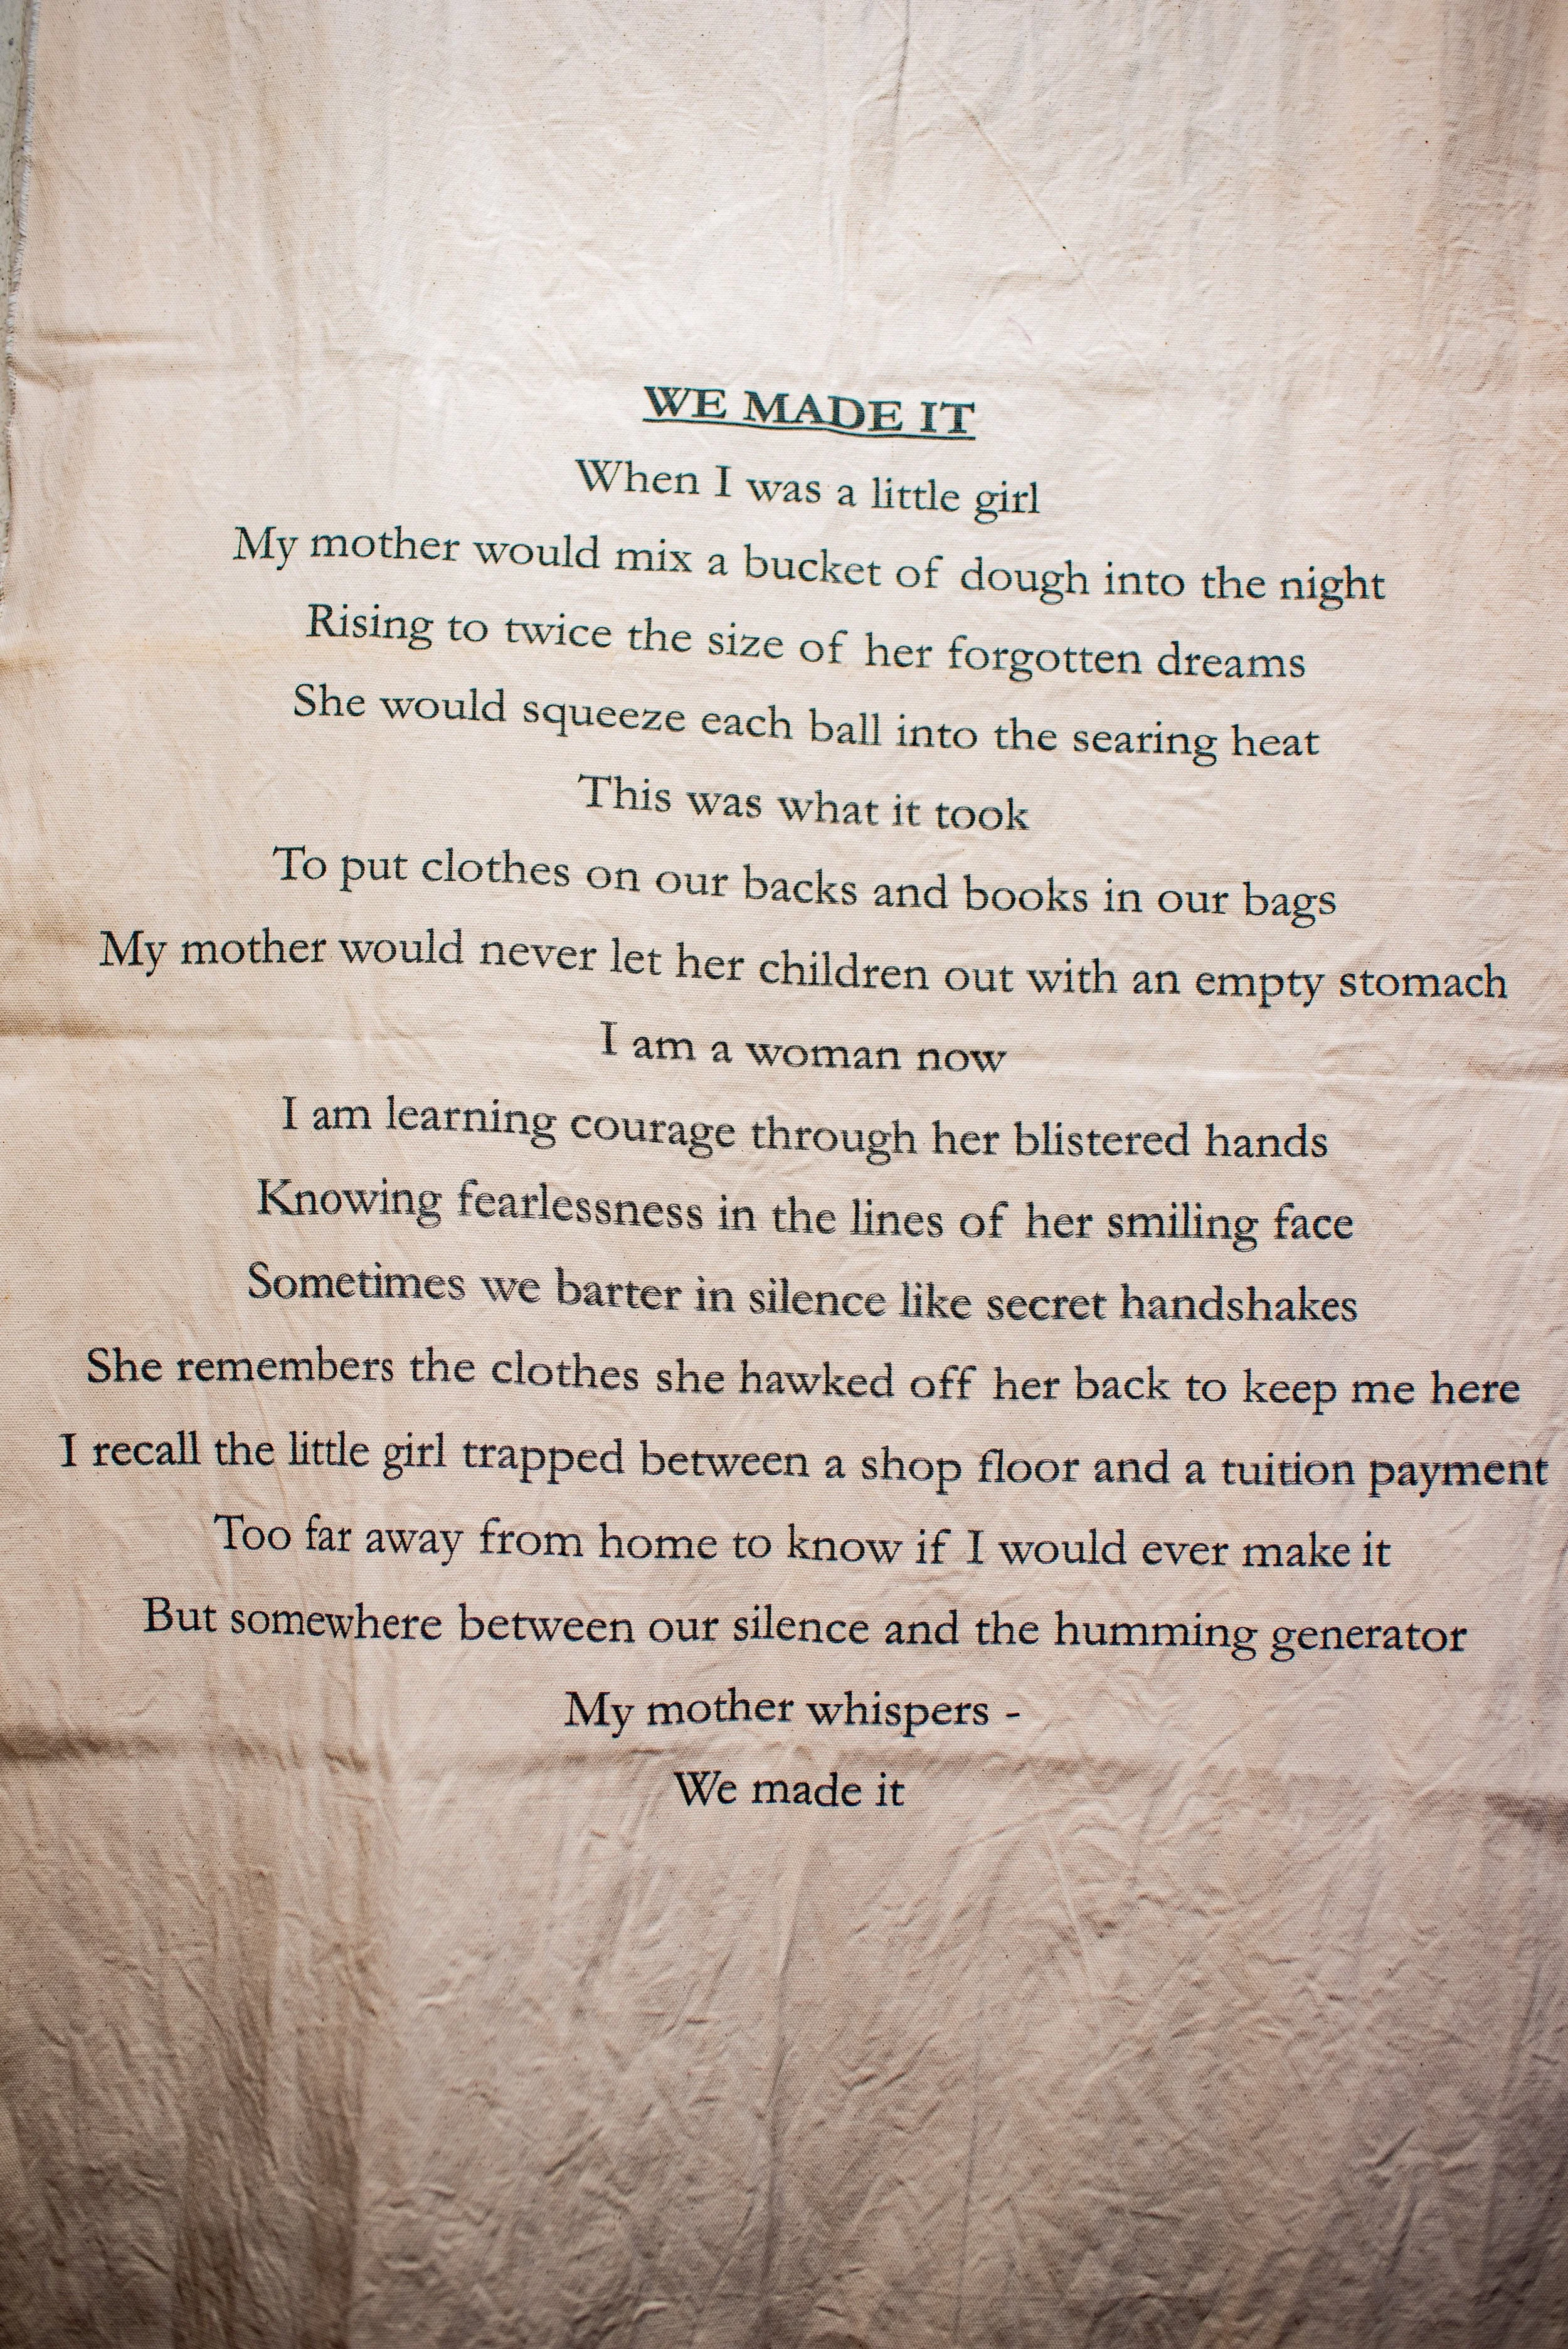 WE MADE IT
When I was a little girl
My mother would mix a bucket of dough into the night
Rising to twice the size of her forgotten dreams
She would squeeze each ball into the searing heat
This was what it took
To put clothes on our backs and books in our bags
My mother would never let her children out with an empty stomach
I am a woman now
I am learning courage through her blistered hands
Knowing fearlessness in the lines of her smiling face
Sometimes we barter in silence like secret handshakes
She remembers the clothes she hawked off her back to keep me here
I recall the little girl trapped between a shop floor and a tuition payment
Too far away from home to know if I would ever make it
But somewhere between our silence and the humming generator
My mother whispers -
We made it